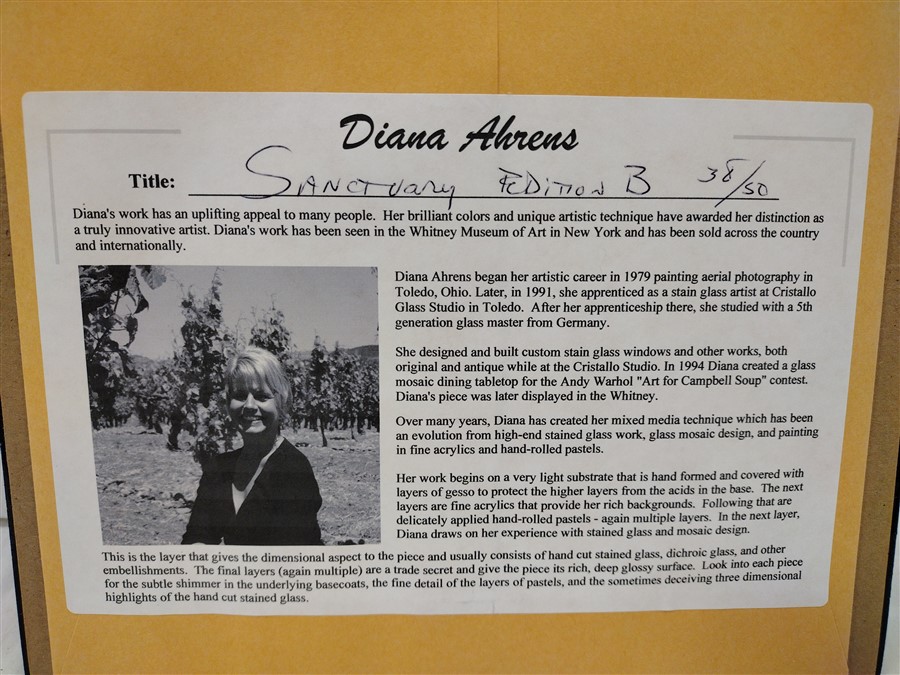 Diana Ahrens
Title: Sanctuary Edition B 38/50
Diana's work has an uplifting appeal to many people. Her brilliant colors and unique artistic technique have awarded her distinction as
a truly innovative artist. Diana's work has been seen in the Whitney Museum of Art in New York and has been sold across the country
and internationally.
Diana Ahrens began her artistic career in 1979 painting aerial photography in
Toledo, Ohio. Later, in 1991, she apprenticed as a stain glass artist at Cristallo
Glass Studio in Toledo. After her apprenticeship there, she studied with a 5th
generation glass master from Germany.
She designed and built custom stain glass windows and other works, both
original and antique while at the Cristallo Studio. In 1994 Diana created a glass
mosaic dining tabletop for the Andy Warhol "Art for Campbell Soup" contest.
Diana's piece was later displayed in the Whitney.
Over many years, Diana has created her mixed media technique which has been
an evolution from high-end stained glass work, glass mosaic design, and painting
in fine acrylics and hand-rolled pastels.
Her work begins on a very light substrate that is hand formed and covered with
layers of gesso to protect the higher layers from the acids in the base. The next
layers are fine acrylics that provide her rich backgrounds. Following that are
delicately applied hand-rolled pastels - again multiple layers. In the next layer,
Diana draws on her experience with stained glass and mosaic design.
This is the layer that gives the dimensional aspect to the piece and usually consists of hand cut stained glass, dichroic glass, and other
embellishments. The final layers (again multiple) are a trade secret and give the piece its rich, deep glossy surface. Look into each piece
for the subtle shimmer in the underlying basecoats, the fine detail of the layers of pastels, and the sometimes deceiving three dimensional
highlights of the hand cut stained glass.